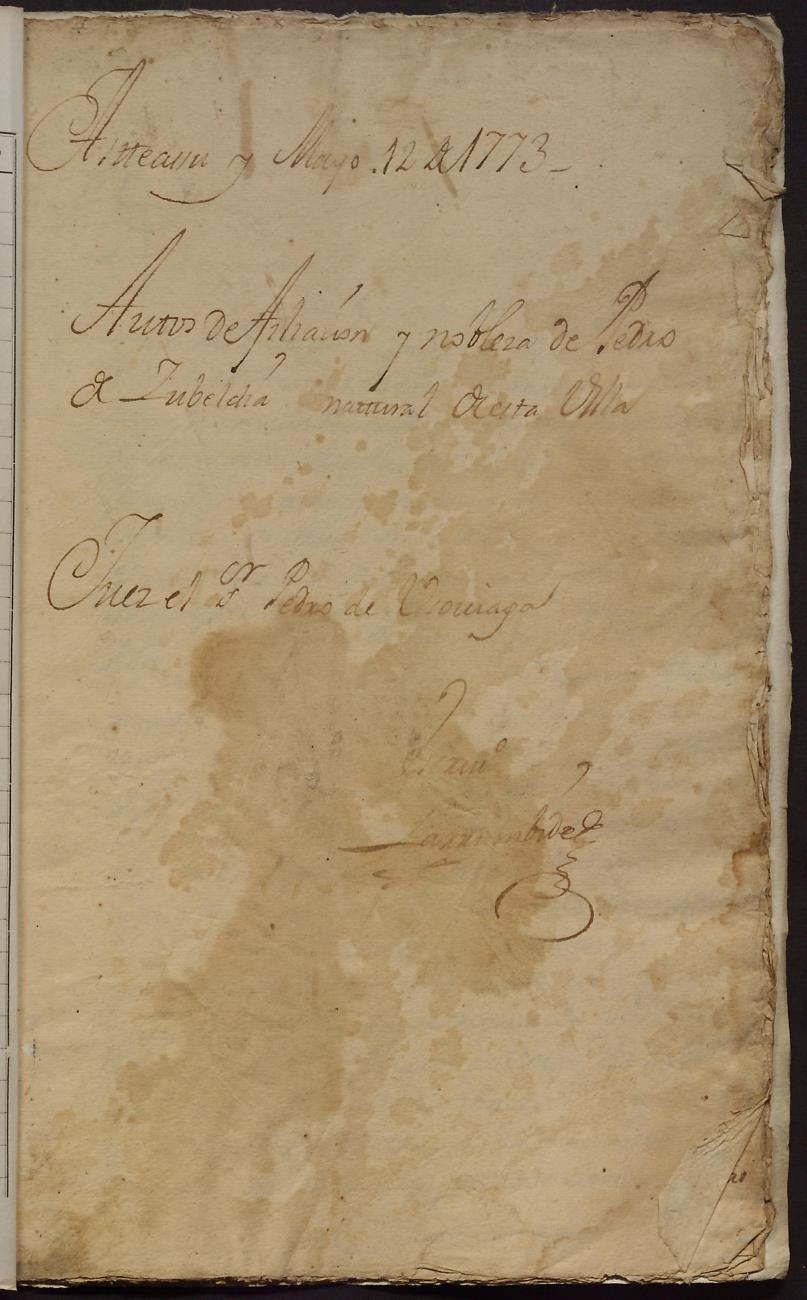 Asteasu y Mayo 12 de 1773
Autos de filiación y nobleza de Pedro
de Zubeldia nattural de esta Villa
Juez el Sr Pedro de Vsouiaga
Larrumbide